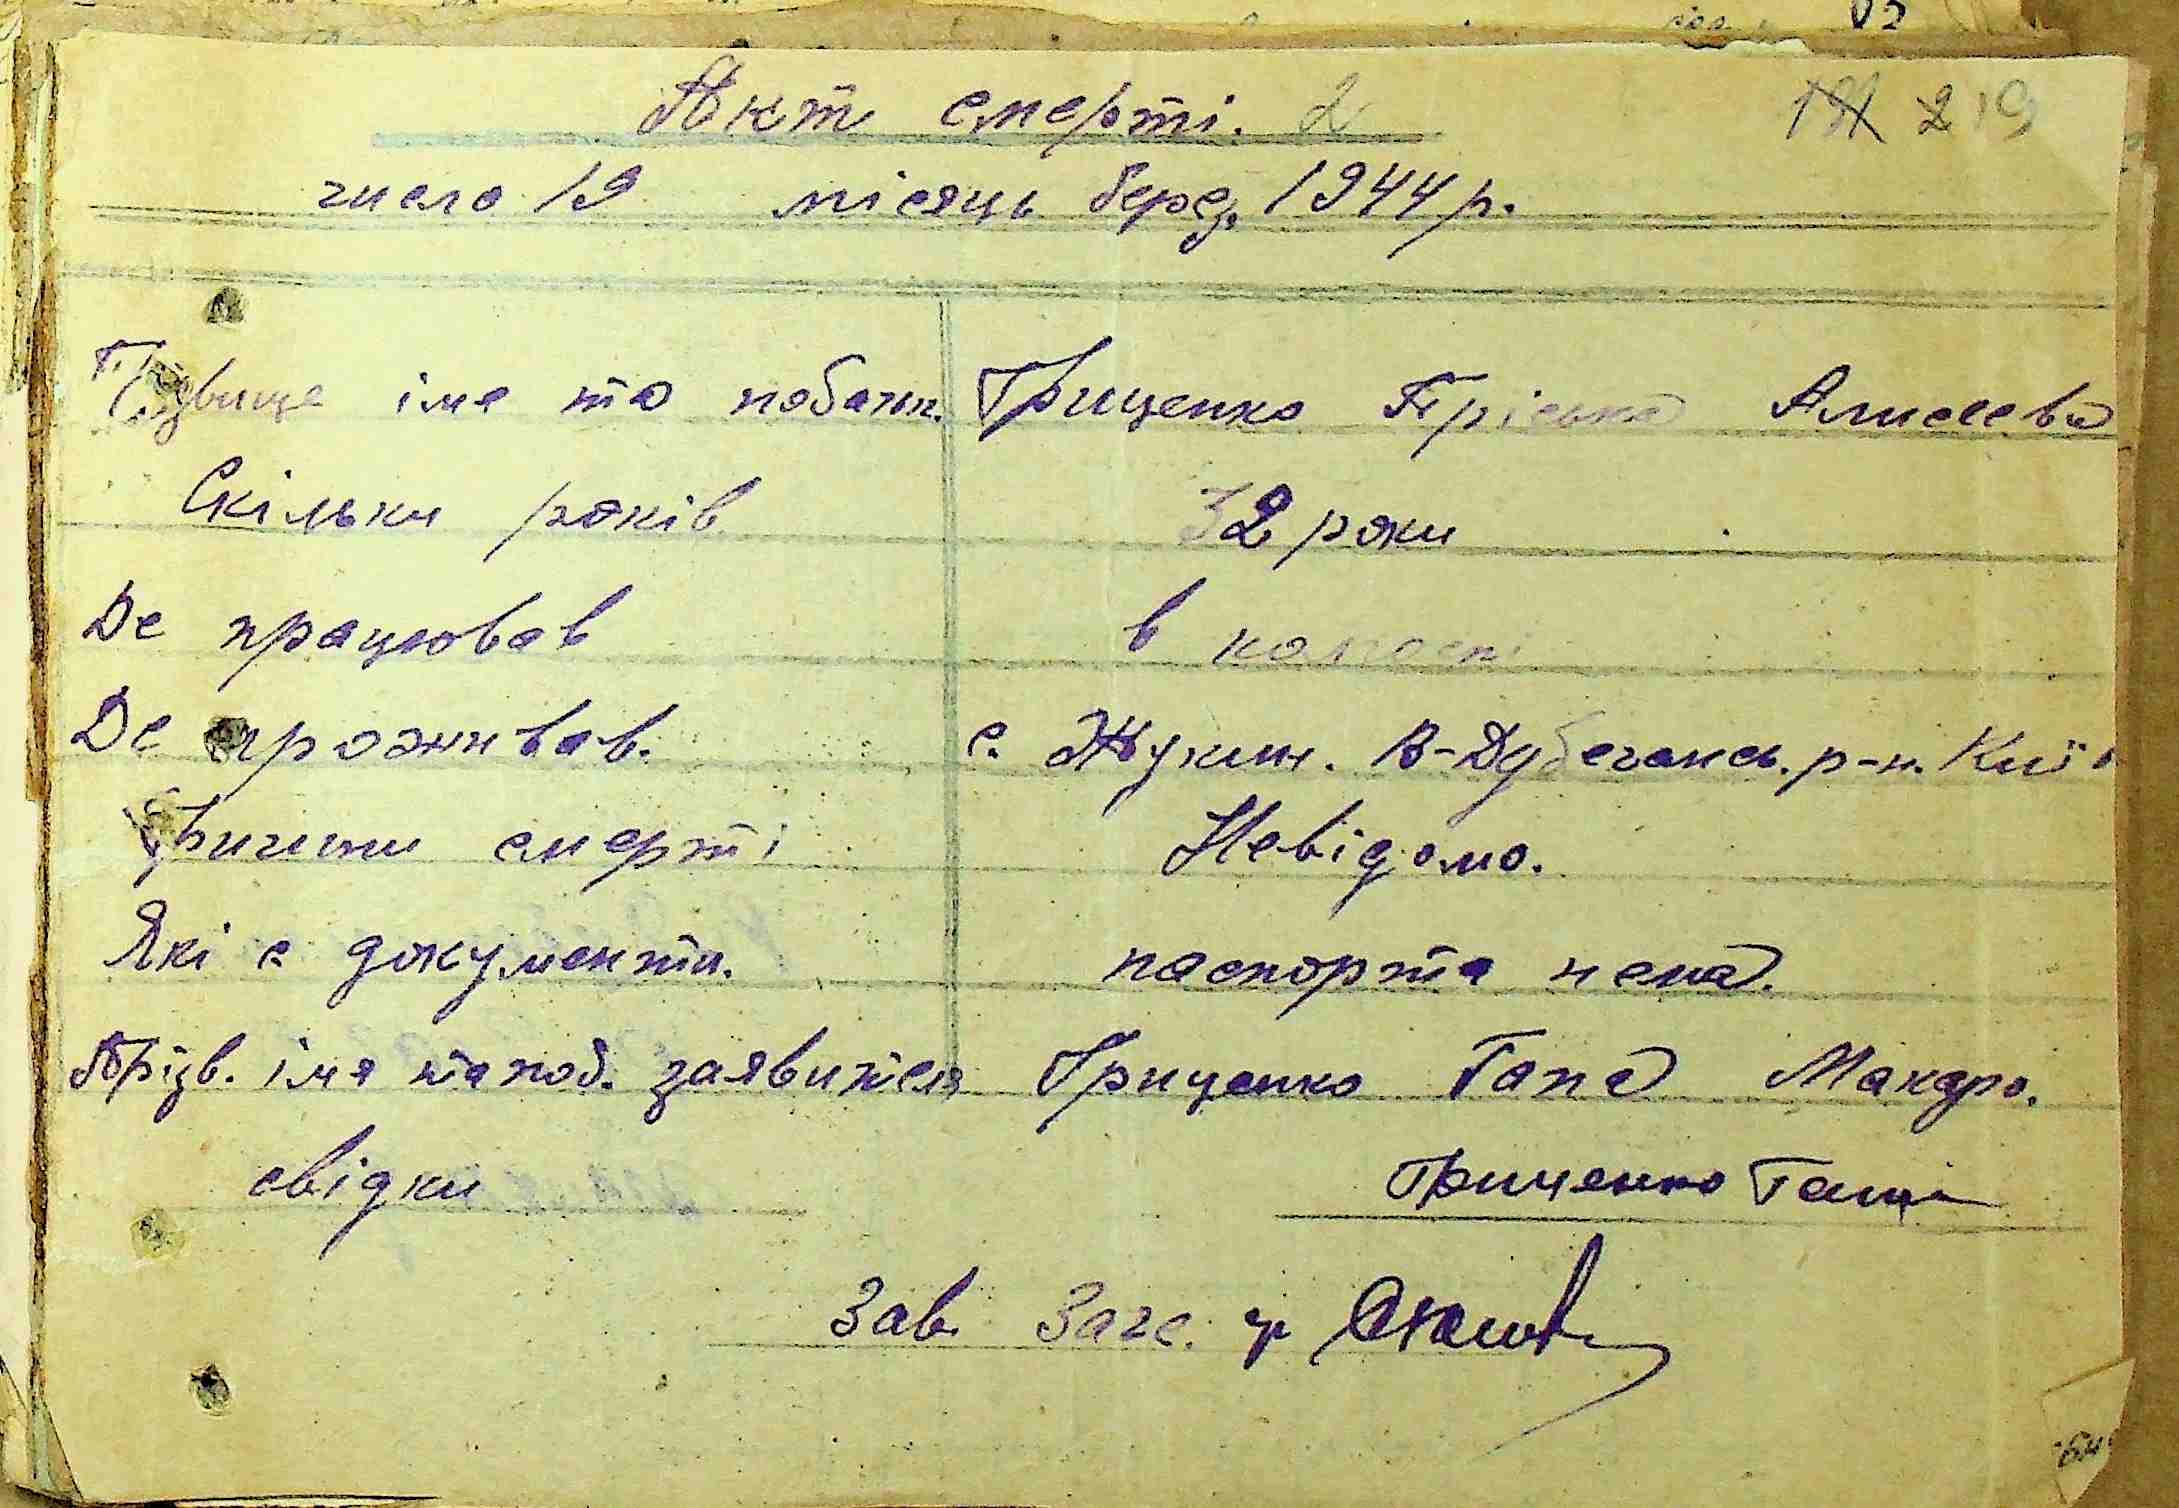 Акт смерті. 2
219
число 19 місяць берез. 1944 р.
імя та побатьк. Гриценко Пріська
Скільки років 32 роки
Де працював в колгоспі
Де проживав. с. Жукин. В-Дубечанськ. р-н. Київ
Причини смерті Невідомо.
Які є документи. паспорта нема.
Прізв. імя та поб. заявителя Гриценко Гапа Макаро.
свідки Гриченко
Зав. Загс.